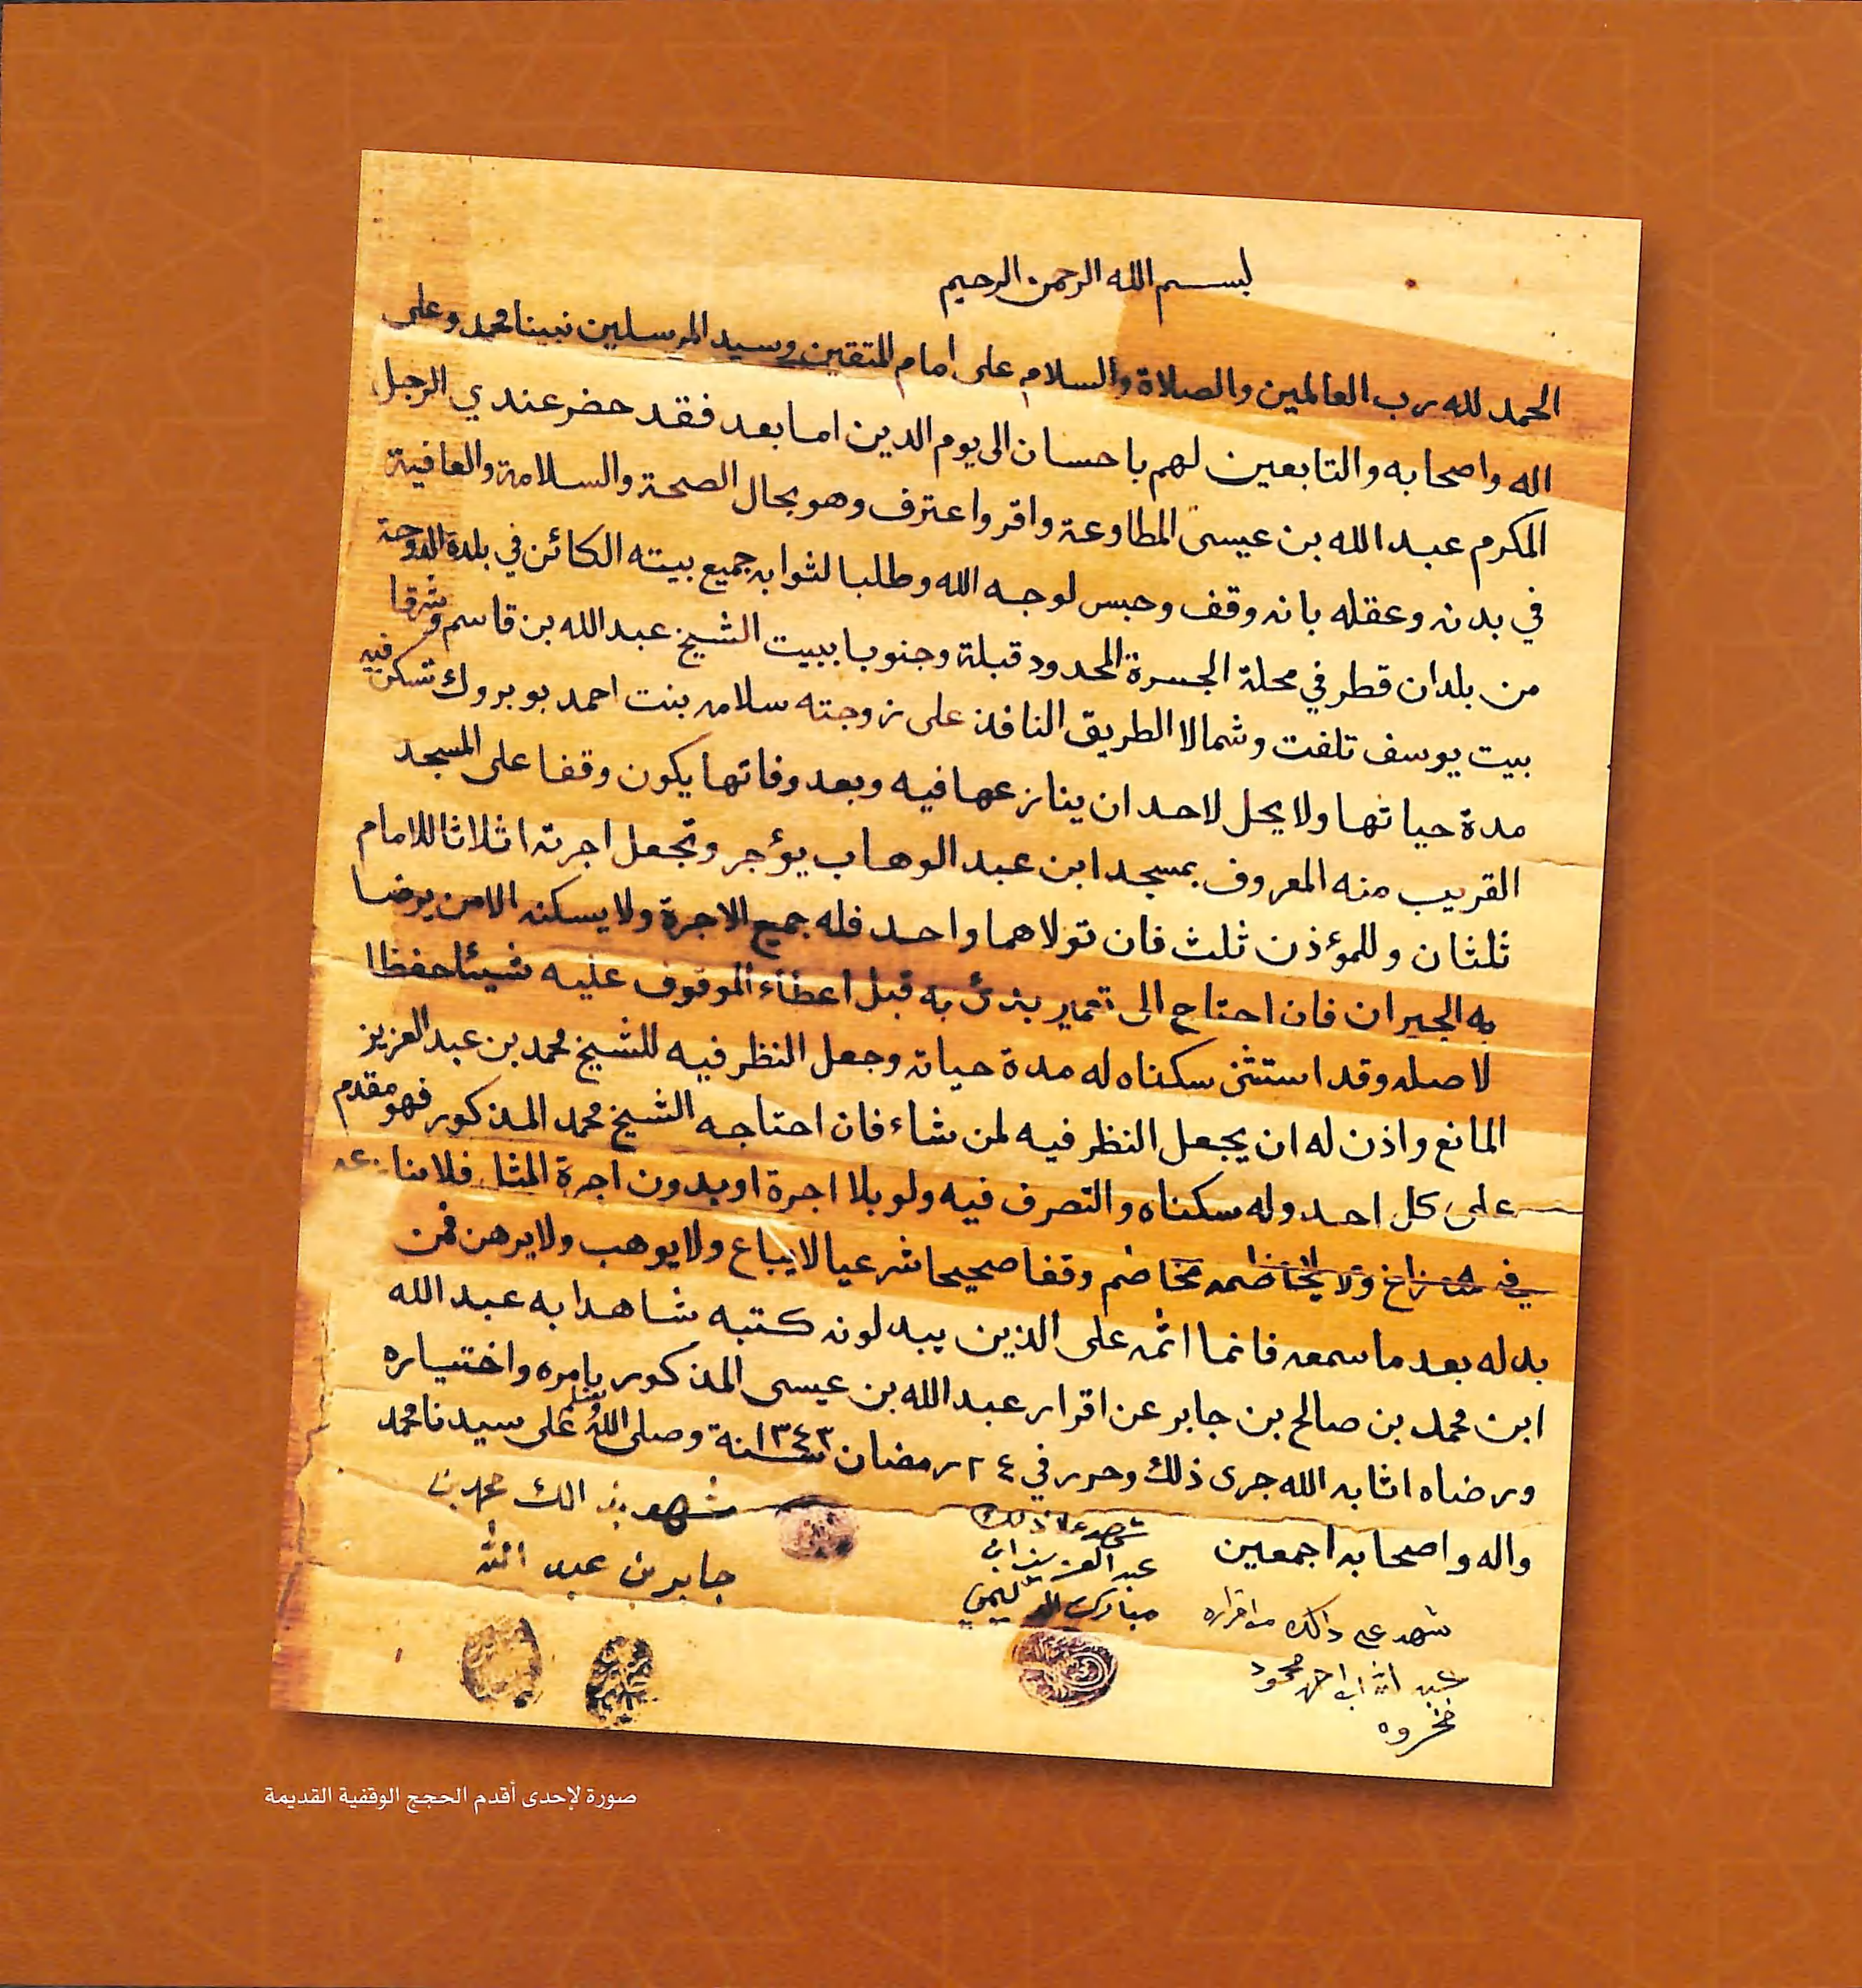 بسم الله الرحمن الرحيم
الحمد لله رب العالمين والصلاة والسلام على امام المتقين وسيد المرسلين نبينا محمد وعلى
اله واصحابه والتابعين لهم باحسان الى يوم الدين اما بعد فقد حضر عندي الرجل
المكرم عبد الله بن عيسى المطاوعة واقر واعترف وهو بحال الصحة والسلامة والعافية
في بدنه وعقله بانه وقف وحبس لوجه الله وطلبا لثوابه جميع بيته الكائن في بلدة الدوحة
من بلدان قطر في محلة الجسرة المحدود قبلة وجنوبا ببيت الشيخ عبد الله بن قاسم وشرقا
بيت يوسف تلفت وشمالا الطريق النافذ على زوجته سلامه بنت احمد بو بروك تسكن فيه
مدة حياتها ولا يحل لاحد ان ينازعها فيه وبعد وفاتها يكون وقفا على المسجد
القريب منه المعروف بمسجد ابن عبد الوهاب يؤجر وتجعل اجرته اثلاثا للامام
ثلثان وللمؤذن ثلث فان تولاهما واحد فله جميع الاجرة ولا يسكنه الا من يرضا
به الجيران فان احتاج الى تعمير بدئ به قبل اعطاء الموقوف عليه شيئا حفظا
لاصله وقد استثنى سكناه له مدة حياته وجعل النظر فيه للشيخ محمد بن عبد العزيز
المانع واذن له ان يجعل النظر فيه لمن شاء فان احتاجه الشيخ محمد المذكور فهو مقدم
على كل احد وله سكناه والتصرف فيه ولو بلا اجرة او بدون اجرة المثل فلا ينازعه
فيه منازع ولا يخاصمه مخاصم وقفا صحيحا شرعيا لا يباع ولا يوهب ولا يرهن فمن
بدله بعد ما سمعه فانما اثمه على الذين يبدلونه كتبه شاهدا به عبد الله
ابن محمد بن صالح بن جابر عن اقرار عبد الله بن عيسى المذكور بامره واختياره
ورضاه اثابه الله جرى ذلك وحرر في ٢٤ رمضان سنة ١٣٤٣ وصلى الله وسلم على سيدنا محمد
واله واصحابه اجمعين
شهد على ذلك
عبد العزيز ابن
مبارك
شهد بذالك محمد بن
جابر بن عبد الله
شهد على ذلك من اقراره
عبد الله ابن احمد محمود
فخروه
صورة لإحدى أقدم الحجج الوقفية القديمة